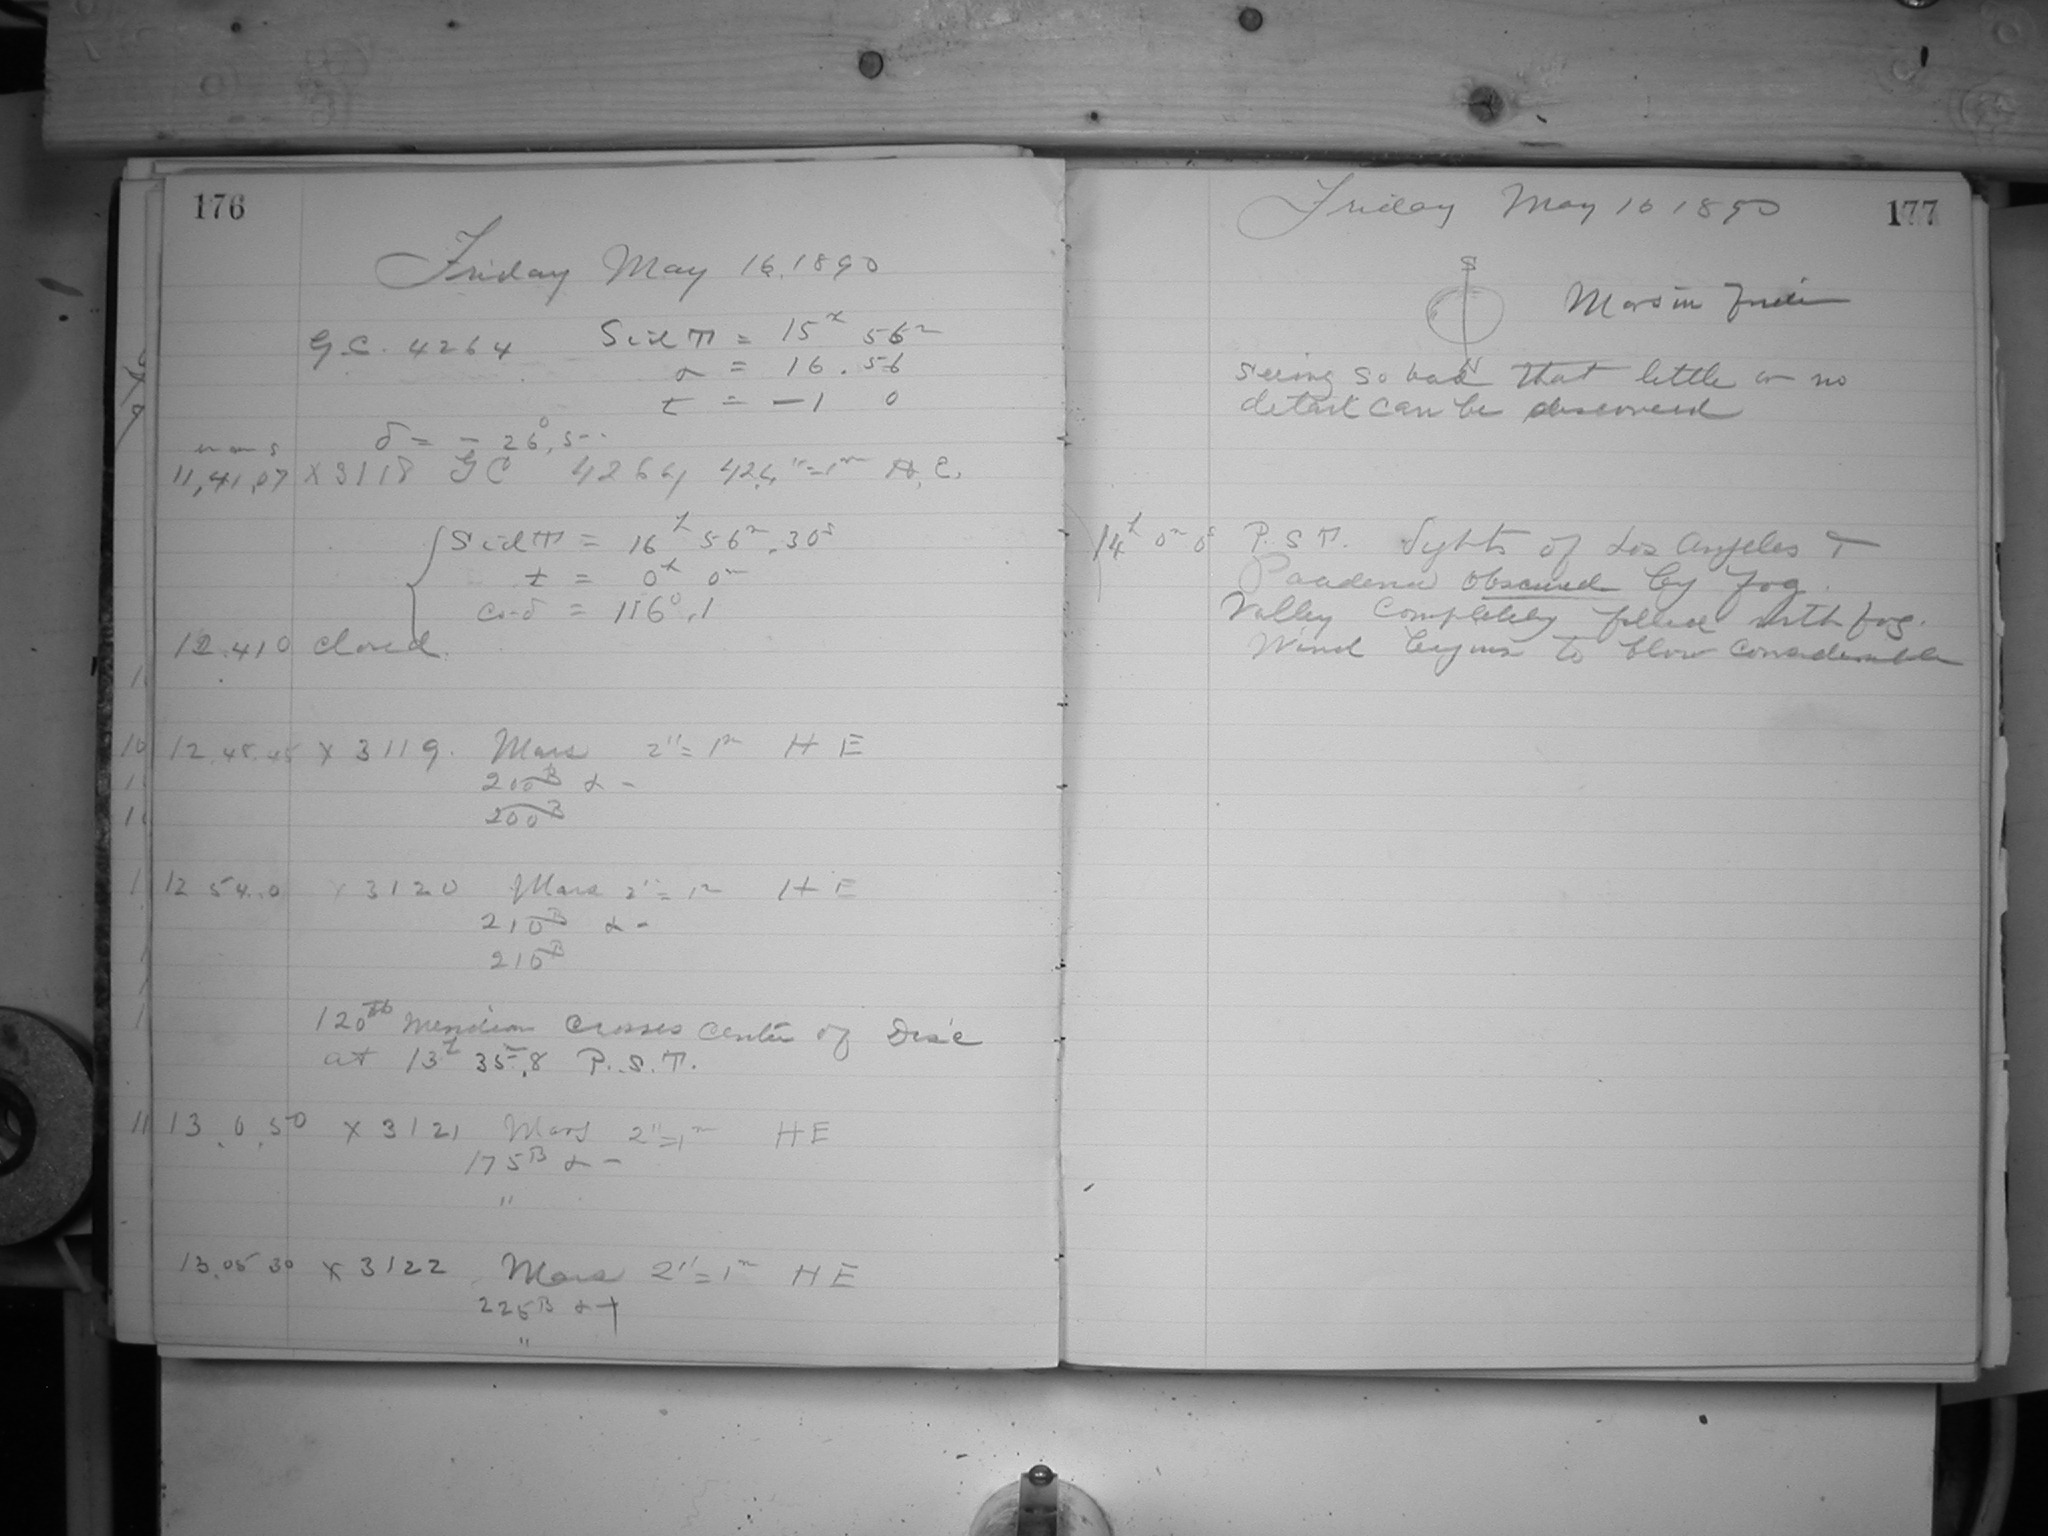 176
Friday May 16, 1890
G.C. 4264 Sid T = 15h 56m
α = 16.56
t = -1 0
δ = - 26°,5
m m s
11,41,07 X3118 GC 4264 424"=1m H.E.
Sid T = 16h 56m.30s
t = 0h 0m
co-δ = 116°.1
12.41 0 closed.
12.48.45 X 3119. Mars 2"=1m H E
200B α -
200B
12 54.0 X3120 Mars 2"=1m H E
210B α -
210B
120th meridian crosses center of Disc
at 13h 35m.8 P.S.T.
13.0.50 X 3121 Mars 2"=1m HE
175B α -
"
13.05 30 X 3122 Mars 2"=1m HE
225B α +
"
Friday May 16 1890
177
S
Mars in
N
seeing so bad that little or no
detail can be discovered
14h 0m 0s P.S.T. Lights of Los Angeles &
Pasadena obscured by fog.
Valley completely filled with fog.
Wind begins to blow considerable